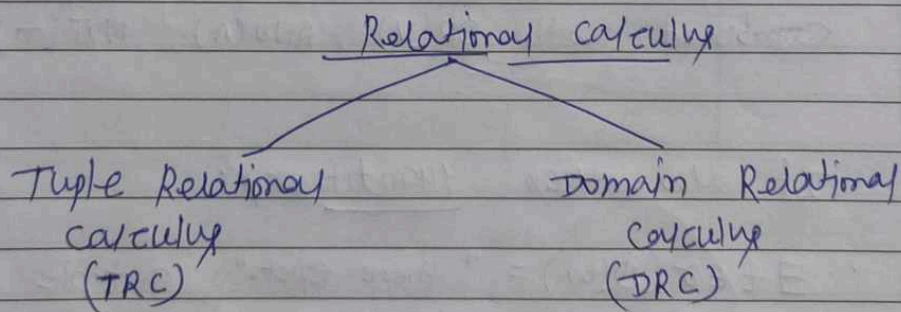 Relational calculus
Tuple Relational
calculus
(TRC)
Domain Relational
calculus
(DRC)